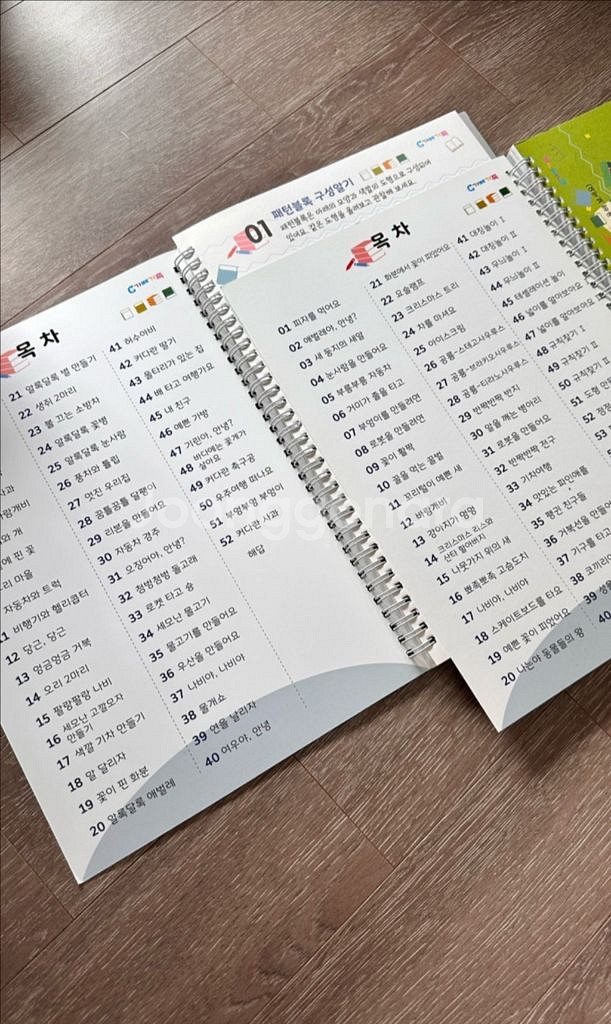 목 차
사과
람개비
와 개
에 핀 꽃
리 마을
자동차와 트럭
11 비행기와 헬리콥터
12 당근, 당근
13 엉금엉금 거북
14 오리 2마리
15 팔랑팔랑 나비
16 세모난 고깔모자
만들기
17 색깔 기차 만들기
18 말 달리자
19 꽃이 핀 화분
20 알록달록 애벌레
21 알록달록 별 만들기
22 생쥐 2마리
23 불 끄는 소방차
24 알록달록 꽃병
25 알록달록 눈사람
26 풍차와 튤립
27 멋진 우리집
28 꼼틀꼼틀 달팽이
29 리본을 만들어요
30 자동차 경주
31 요정아야, 안녕?
32 첨벙첨벙 돌고래
33 로켓 타고 슝
34 세모난 물고기
35 물고기를 만들어요
36 우산을 만들어요
37 나비야, 나비야
38 물개쇼
39 연을 날리자
40 여우야, 안녕
41 허수아비
42 커다란 딸기
43 울타리가 있는 집
44 배 타고 여행가요
45 내 친구
46 예쁜 가방
47 기린아, 안녕?
48 바다에는 꽃게가
살아요
49 커다란 축구공
50 우주여행 떠나요
51 부엉부엉 부엉이
52 커다란 사과
해답
01 패턴블록 구성알기
패턴블록은 아래의 모양과 색깔의 도형으로 구성되어
있어요. 같은 도형을 올려보고 관찰해 보세요.
목 차
01 피자를 먹어요
02 애벌레야, 안녕?
03 새 둥지의 새알
04 눈사람을 만들어요
05 부릉부릉 자동차
06 거미가 줄을 타고
07 부엉이를 만들려면
08 로봇을 만들려면
09 꽃이 활짝
10 꿀을 먹는 꿀벌
11 프리팅이 예쁜 새
12 바람개비
13 강아지가 멍멍
14 크리스마스 리스와
산타 할아버지
15 나뭇가지 위의 새
16 뾰족뾰족 고슴도치
17 나비야, 나비야
18 스케이트보드를 타요
19 예쁜 꽃이 피었어요
20 나는야 동물들의 왕
21 화분에서 꽃이 피었어요
22 요술램프
23 크리스마스 트리
24 차를 마셔요
25 아이스크림
26 공룡-스테고사우루스
27 공룡-브라키오사우루스
28 공룡-티라노사우루스
29 반짝반짝 반지
30 알을 깨는 병아리
31 로봇을 만들어요
32 반짝반짝 전구
33 기차여행
34 맛있는 파인애플
35 펭귄 친구들
36 거북선을 만들
37 가구를 타고
38 코끼리
39 생
40
41 대칭놀이 I
42 대칭놀이 II
43 무늬놀이 I
44 무늬놀이 II
45 테셀레이션 놀이
46 넓이를 알아보아요
47 넓이를 알아보아요
48 규칙찾기 I
49 규칙찾기 II
50 규칙찾기
51 도형
52
53
54
joonggonara